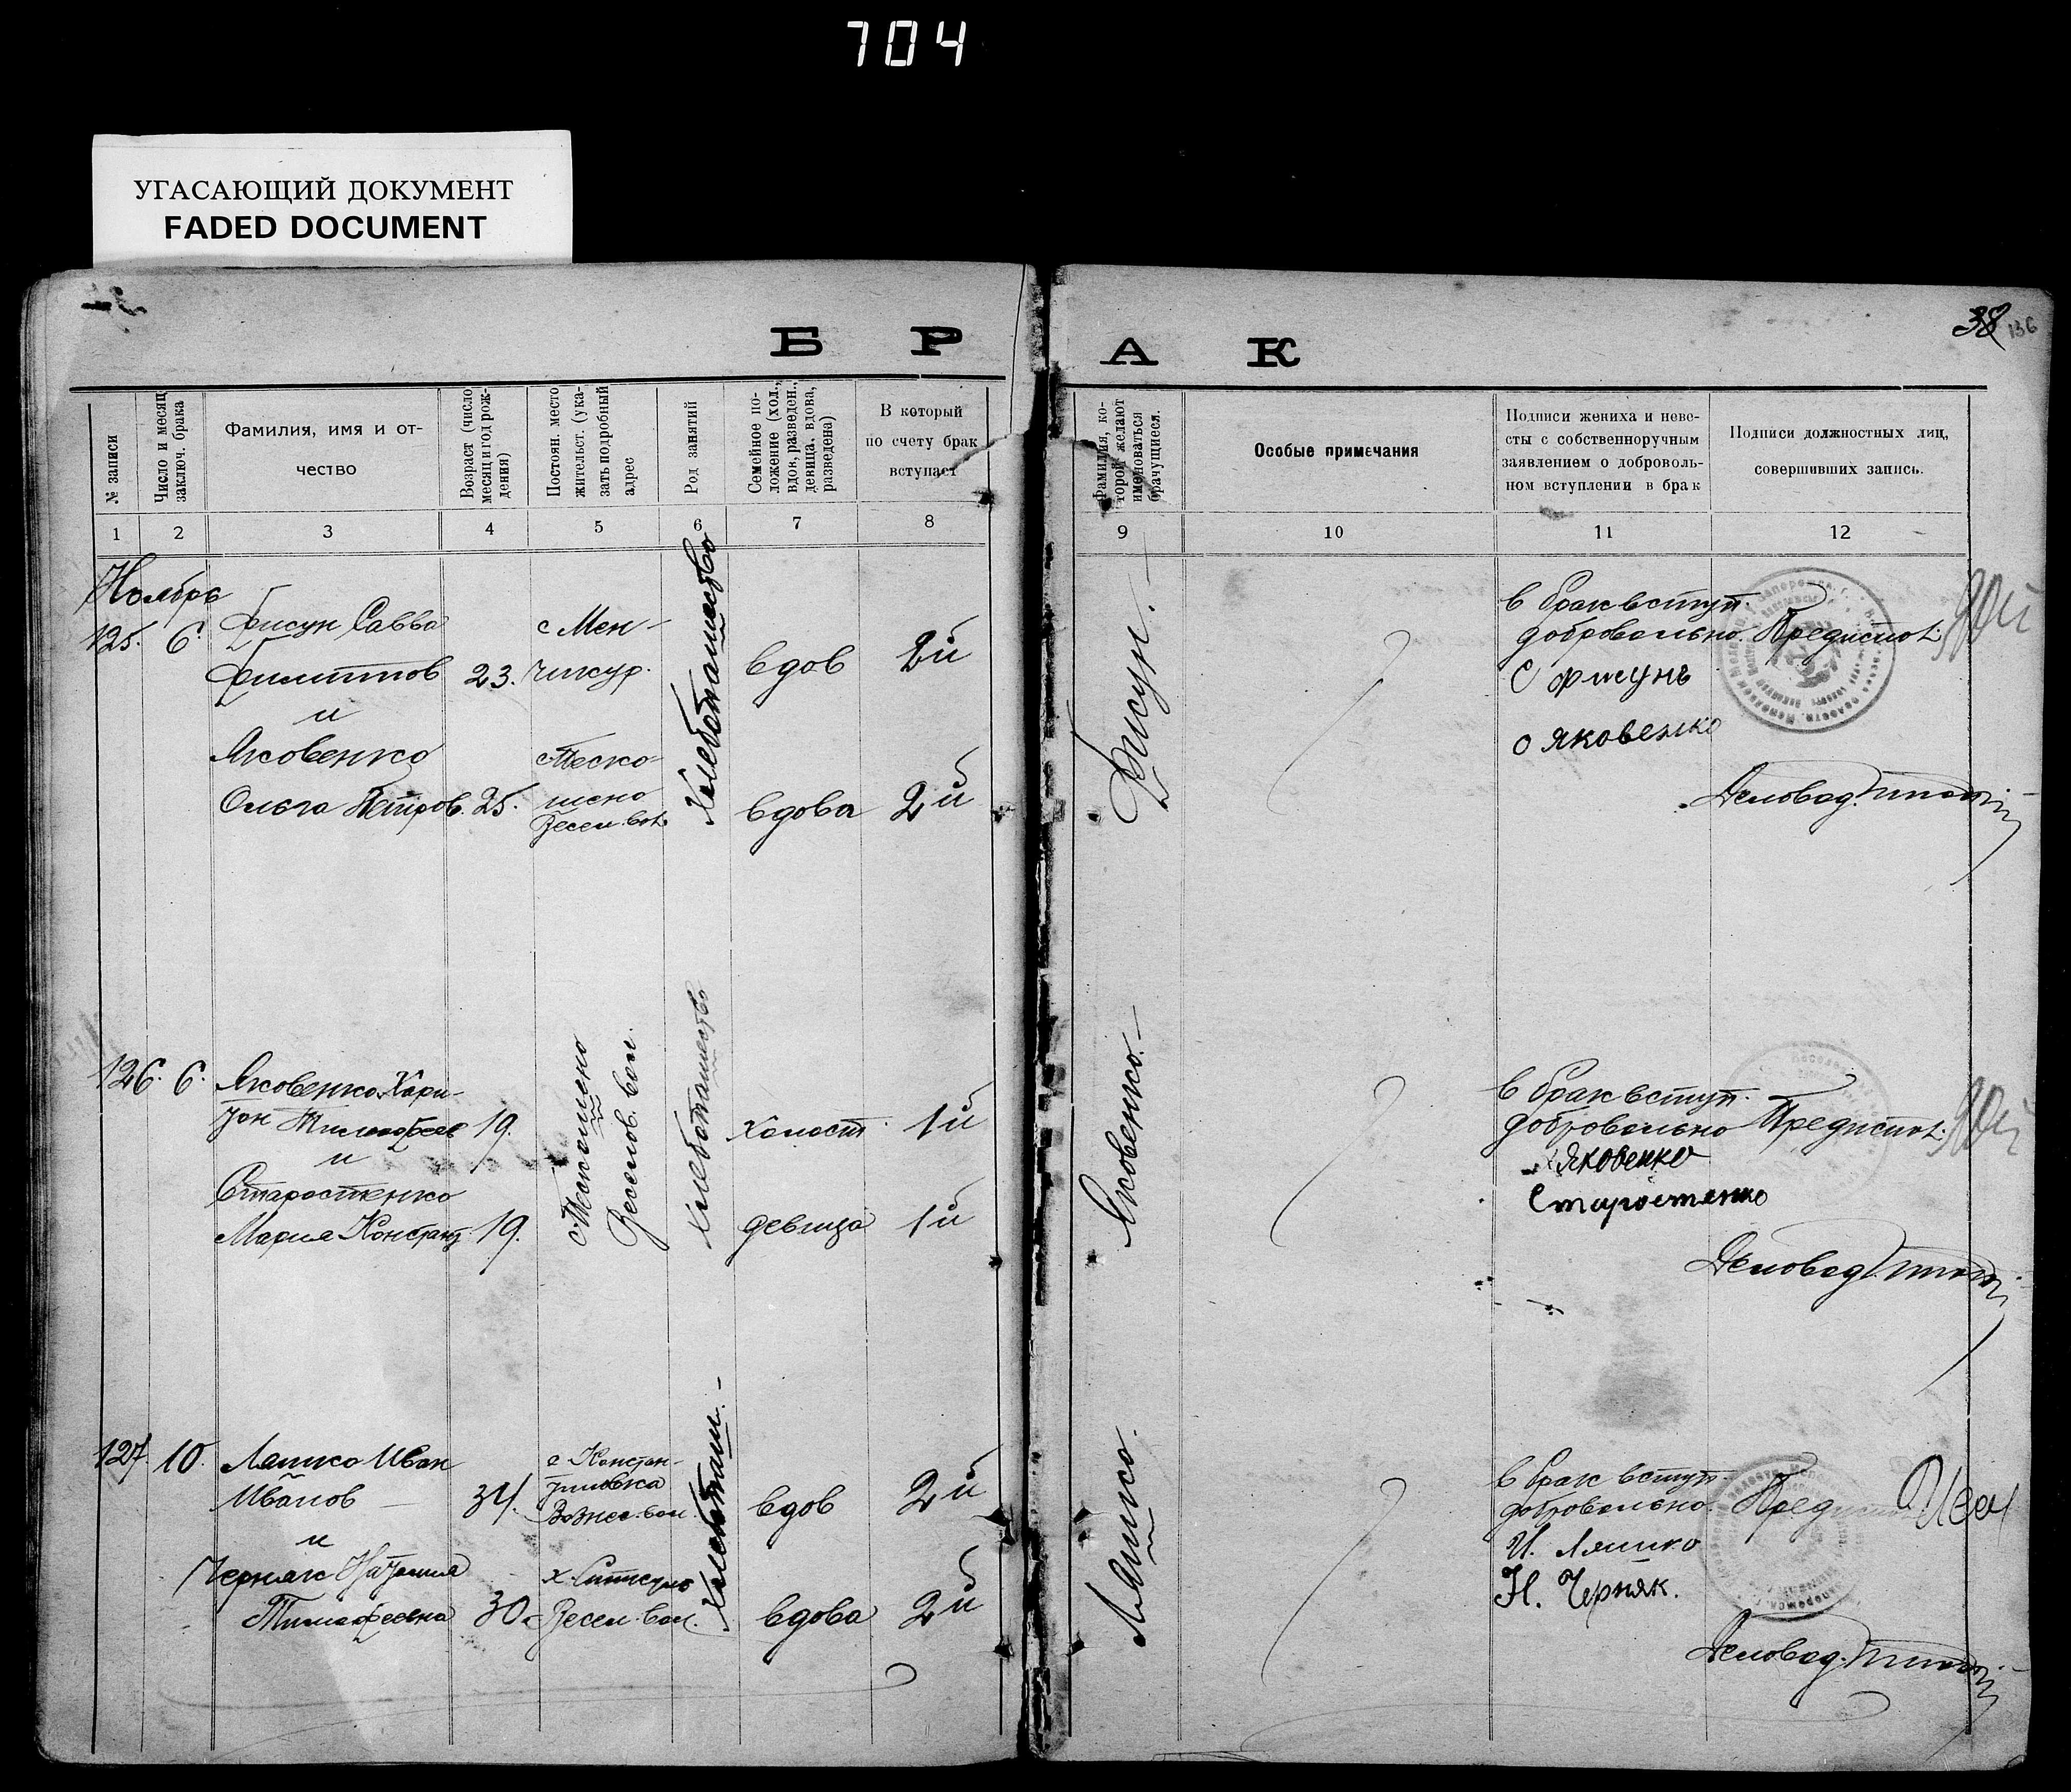 704
УГАСАЮЩИЙ ДОКУМЕНТ
FADED DOCUMENT
38
136
БРАК
№ записи
Число и месяц
заключ. брака
Фамилия, имя и от-
чество
Возраст (число
месяц и год рож-
дения)
Постоян. место
жительст. (ука-
зать подробный
адрес
Род занятий
Семейное по-
ложение (хол.,
вдов, разведен.,
девица, вдова,
разведена)
В который
по счету брак
вступает
Фамилия, ко-
торой желают
именоваться
брачущиеся.
Особые примечания
Подписи жениха и неве-
сты с собственноручным
заявлением о доброволь-
ном вступлении в брак
Подписи должностных лиц,
совершивших запись.
1 2 3 4 5 6 7 8 9 10 11 12
Ноябрь
125. 6.
Фисун Савва
Филиппов 23.
и
Яковенко
Ольга Петров. 25.
с Мен-
чикур.
Весел. вол.
Хлебопашество
вдов 2й
вдова 2й
Фисун.
в брак вступ.
добровольно. Предиспол.
С Фисунъ
О Яковенко
Деловод.
126. 6.
Яковенко Хари-
тон Тимофеев 19.
и
Старостенко
Мария Констант. 19.
Веселов. вол.
Хлебопашество
холост 1й
девица 1й
Яковенко.
в брак вступ.
добровольно Предиспол.
Яковенко
Старостенко
Деловод.
127 10.
Ляшко Иван
Иванов 34.
и
Черняк Наталия
Тимофеевна 30.
с Констан-
тиновка
Вознес. вол.
Весел. вол.
Хлебопаш.
вдов 2й
вдова 2й
Ляшко.
в брак вступ.
добровольно.
И. Ляшко
Н. Черняк.
Деловод.